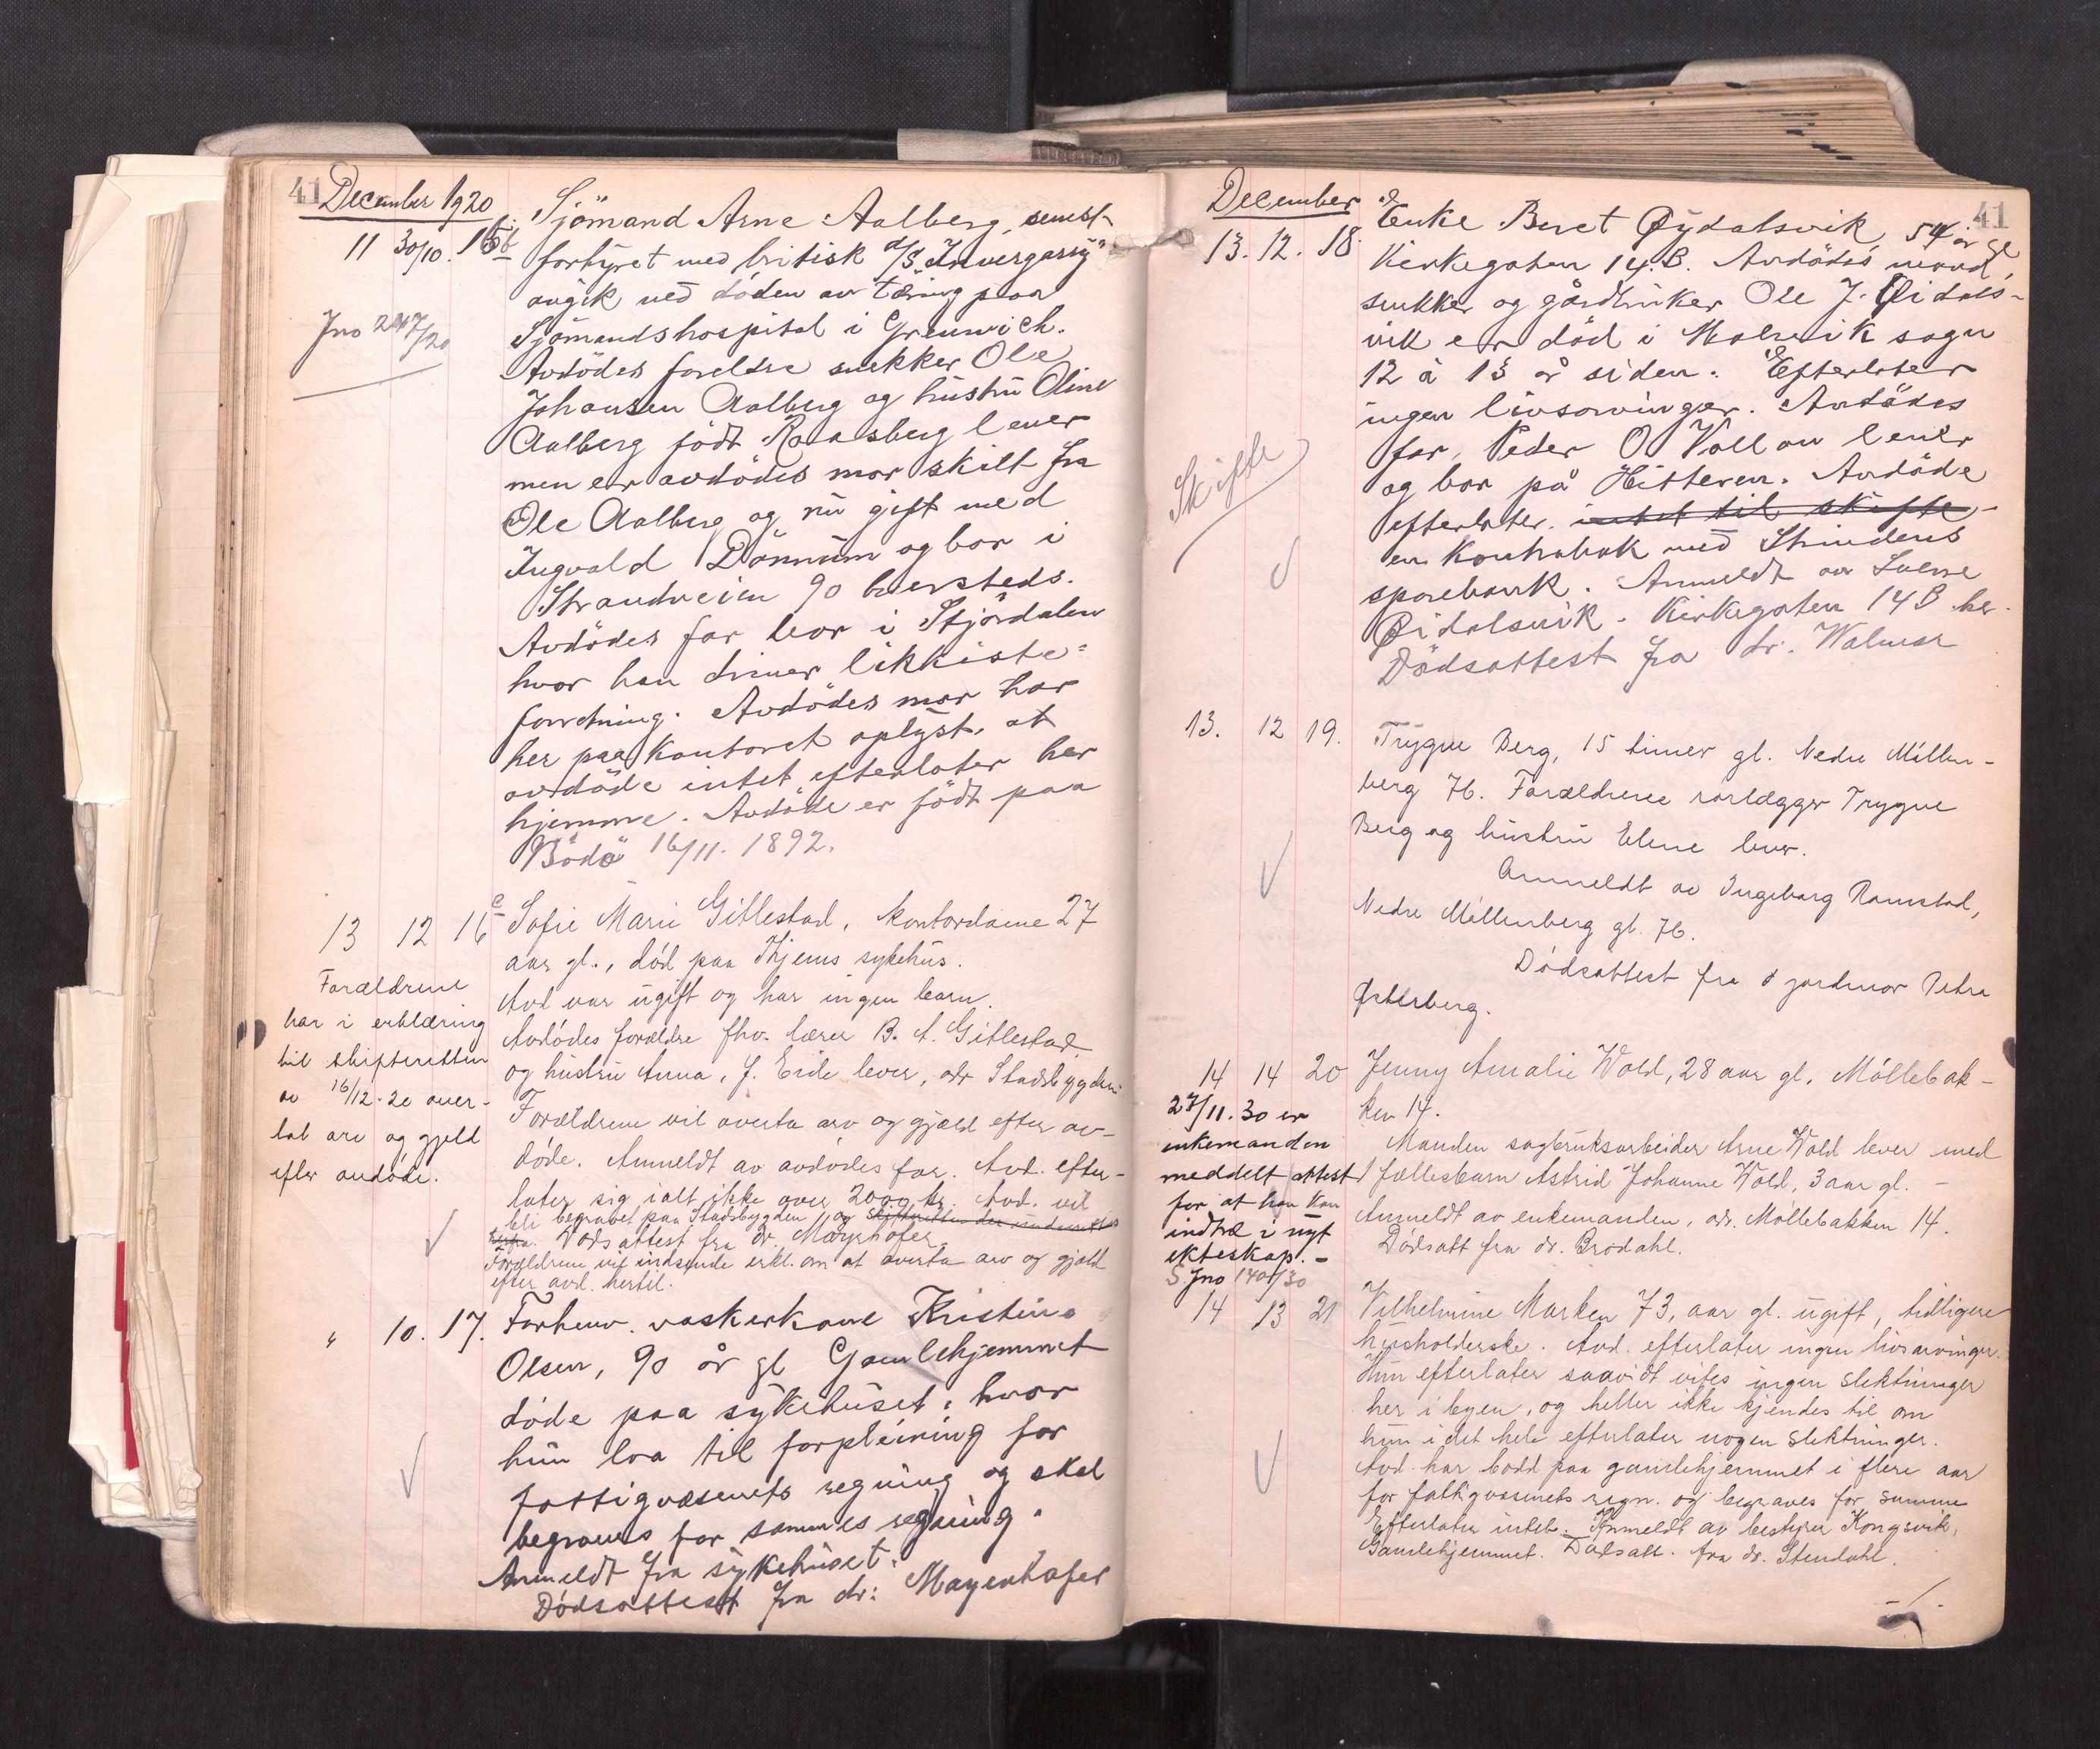 41 December 1920
11 30/10. 15b. Sjömand Arne Aalberg, senest
forhyret med britisk d/s "Invergarry"
avgik ved döden av tæring paa
Jno 247/20
Sjömandshospital i Greenwich.
Avdödes foreldre snekker Ole
Johansen Aalberg og hustru Oline
Aalberg födt Raasberg lever
men er avdödes mor skilt fra
Ole Aalberg og nu gift med
Ingvald Dönnum og bor i
Strandveien 90 hersteds.
Avdödes far bor i Stjördalen
hvor han driver likkiste=
forretning. Avdödes mor har
her paa kontoret oplyst, at
avdöde intet efterlater her
hjemme. Avdöde er födt paa
Bodö 16/11. 1892.
13 12 16 Sofie Marie Gillestad, kontordame 27
aar gl., död paa Thjems sykehus.
Avd var ugift og har ingen barn.
Avdödes forældre fhv. lærer B. A. Gillestad
og hustru Anna, f. Eide lever, adr Stadsbygden.
Forældrene vil overta arv og gjæld efter av-
döde. Anmeldt av avdödes far. Avd. efter-
later sig ialt ikke over 2000 kr. Avd. vil
bli begravet paa Stadsbygden, og skifteretten der underrettes
herfra. Dödsattest fra dr. Mayrhofer.
Forældrene vil indsende erkl. om at overta arv og gjæld
efter avd. hertil.
Forældrene
har i erklæring
til skifteretten
av 16/12-20 over-
tat arv og gjeld
efter avdöde.
" 10. 17. Forhenv. vaskerkone Kristine
Olsen, 90 år gl Gamlehjemmet
döde paa sykehuset, hvor
hun laa til forpleining for
fattigvæsenets regning og skal
begraves for sammes regning.
Anmeldt fra sykehuset.
Dödsattest fra dr: Mayerhofer
December 41
13. 12. 18. Enke Beret Öydalsvik, 54 år gl
Kirkegaten 14.B. Avdödes mand,
snekker og gårdbruker Ole J. Öidals-
vik er död i Malvik sogn
12 à 13 år siden. Efterlater
ingen livsarvinger. Avdödes
far, Peder O Vollan lever
og bor på Hitteren. Avdöde
efterlater intet til skifte -
en kontrabok med Strindens
sparebank. Anmeldt av Sverre
Öidalsvik. Kirkegaten 14B her.
Dödsattest fra dr. Walmer
Skifte
13. 12 19. Trygve Berg, 15 timer gl. Nedre Möllen-
berg 76. Forældrene rörlægger Trygve
Berg og hustru Elene lever.
Anmeldt av Ingeborg Ramstad,
Nedre Möllenberg gt. 76.
Dödsattest fra jordmor Petra
Österberg.
14 14 20 Jenny Amalie Wold, 28 aar gl. Möllebak-
ken 14.
Manden sagbruksarbeider Arne Wold lever med
1 fællesbarn Astrid Johanne Wold, 3 aar gl. -
Anmeldt av enkemanden, adr. Möllebakken 14.
Dödsatt fra dr. Brodahl.
27/11.30 er
enkemanden
meddelt attest
for at han kan
indtræ i nyt
ekteskap. -
S. Jno 1401/30
14 13 21 Vilhelmine Marken 73, aar gl. ugift, tidligere
husholderske. Avd. efterlater ingen livsarvinger.
Hun efterlater saavidt vites ingen slektninger
her i byen, og heller ikke kjendes til om
hun i det hele efterlater nogen slektninger.
Avd. har bodd paa gamlehjemmet i flere aar
for fattigvæsenets regn. og begraves for samme
Efterlater intet. Anmeldt av bestyrer Kongsvik,
Gamlehjemmet. Dödsatt. fra dr. Stendahl.